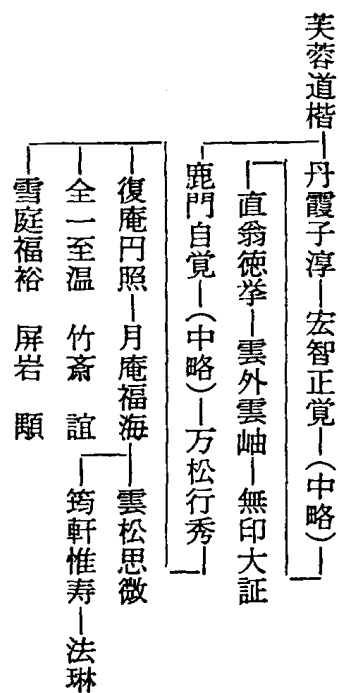 芙蓉道楷
丹霞子淳―宏智正覚―(中略)
直翁徳挙―雲外雲岫―無印大証
鹿門自覚―(中略)―万松行秀
復庵円照―月庵福海―雲松思微
筠軒惟寿―法琳
全一至温 竹斎 誼
雪庭福裕 屏岩 顒